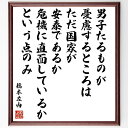 男子たるものが
憂慮するところは
ただ国家が
安泰であるか
危機に直面しているか
という点のみ
橋本左内